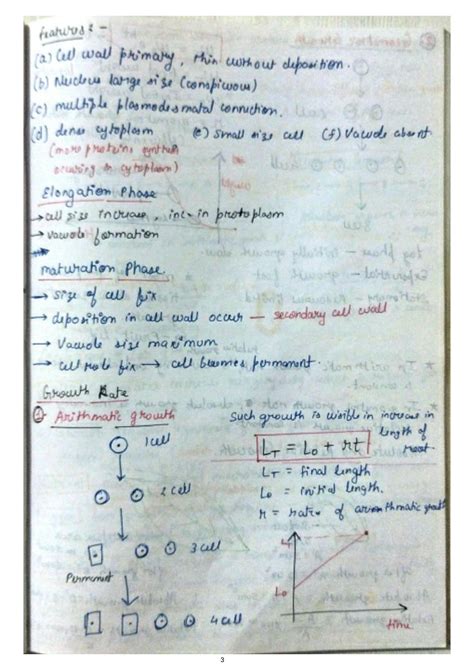 Features :-
(a) Cell wall primary, thin without deposition.
(b) Nucleus large size (conspiwous)
(c) multiple plasmodesmatal connection.
(d) dense cytoplasm (e) Small size cell (f) Vacuole absent.
(more proteins synthesis
occuring in cytoplasm)
Elongation Phase
→ cell size increase, inc. in protoplasm
→ vacuole formation
maturation Phase
→ Size of cell fix
→ deposition in cell wall occur — secondary cell wall
→ Vacuole size maximum
→ cell role fix → cell becomes permanent.
Growth Rate
① Arithmatic growth
Such growth is visible in increase in
length of
root.
1 cell
LT = L0 + rt
LT = final length
L0 = initial length.
r = rate of arithmatic growth
2 cell
3 cell
Permanent
4 cell
L0
time
3